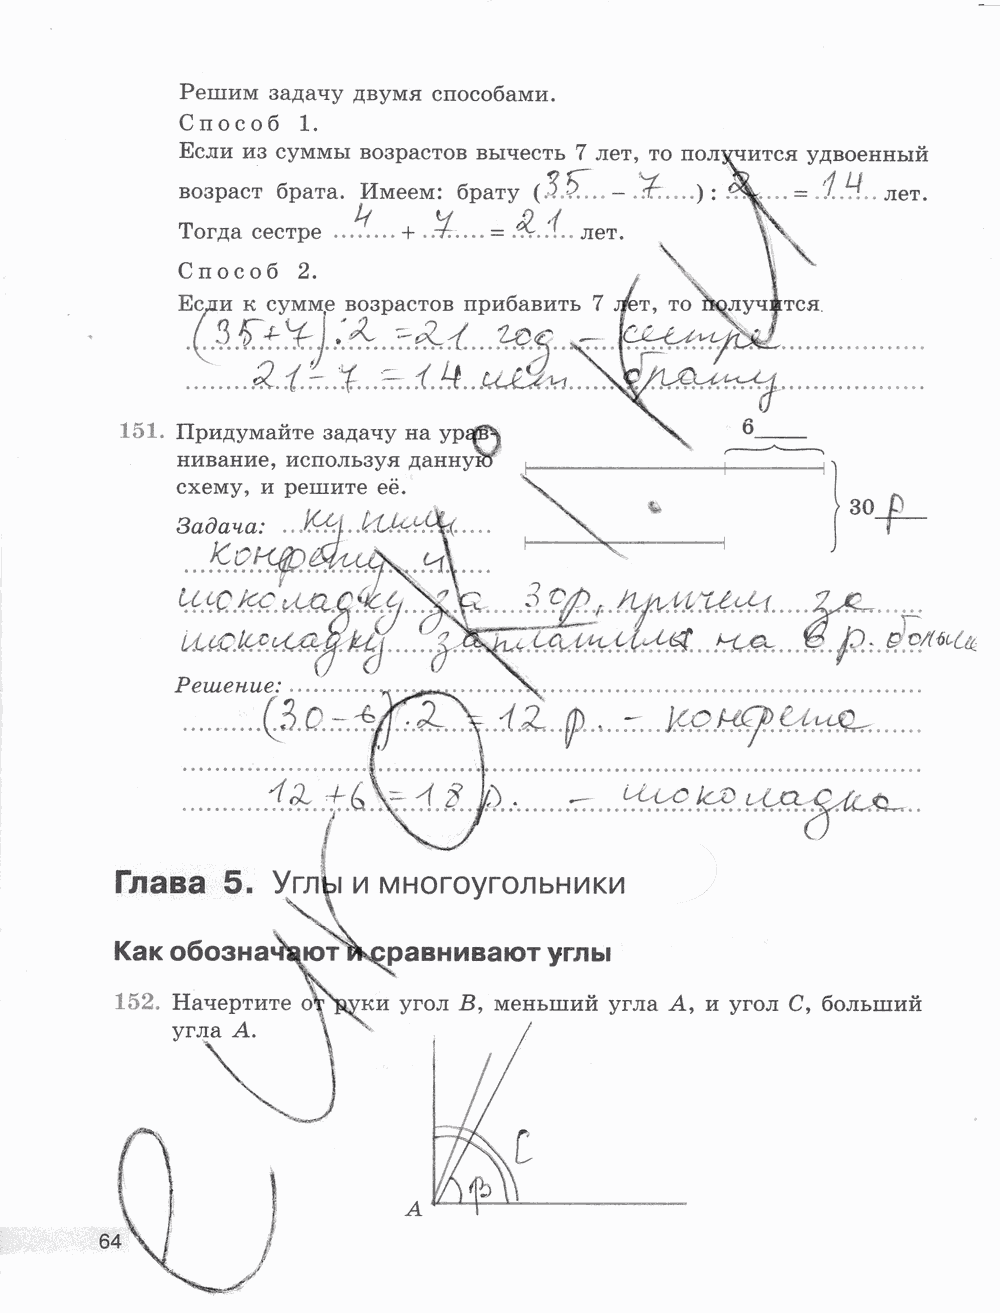 Решим задачу двумя способами.
Способ 1.
Если из суммы возрастов вычесть 7 лет, то получится удвоенный
возраст брата. Имеем: брату (35 – 7) : 2 = 14 лет.
Тогда сестре 4 + 7 = 21 лет.
Способ 2.
Если к сумме возрастов прибавить 7 лет, то получится
(35+7):2 =21 год – сестре
21–7 =14 лет брату
151. Придумайте задачу на урав-
нивание, используя данную
схему, и решите её.
6
30 р
Задача: купили
конфету и
шоколадку за 30р, причем за
шоколадку заплатили на 6 р. больше
Решение:
(30–6):2 = 12 р. – конфета
12+6 =18 р. – шоколадка
Глава 5. Углы и многоугольники
Как обозначают и сравнивают углы
152. Начертите от руки угол B, меньший угла A, и угол C, больший
угла A.
C
B
A
64